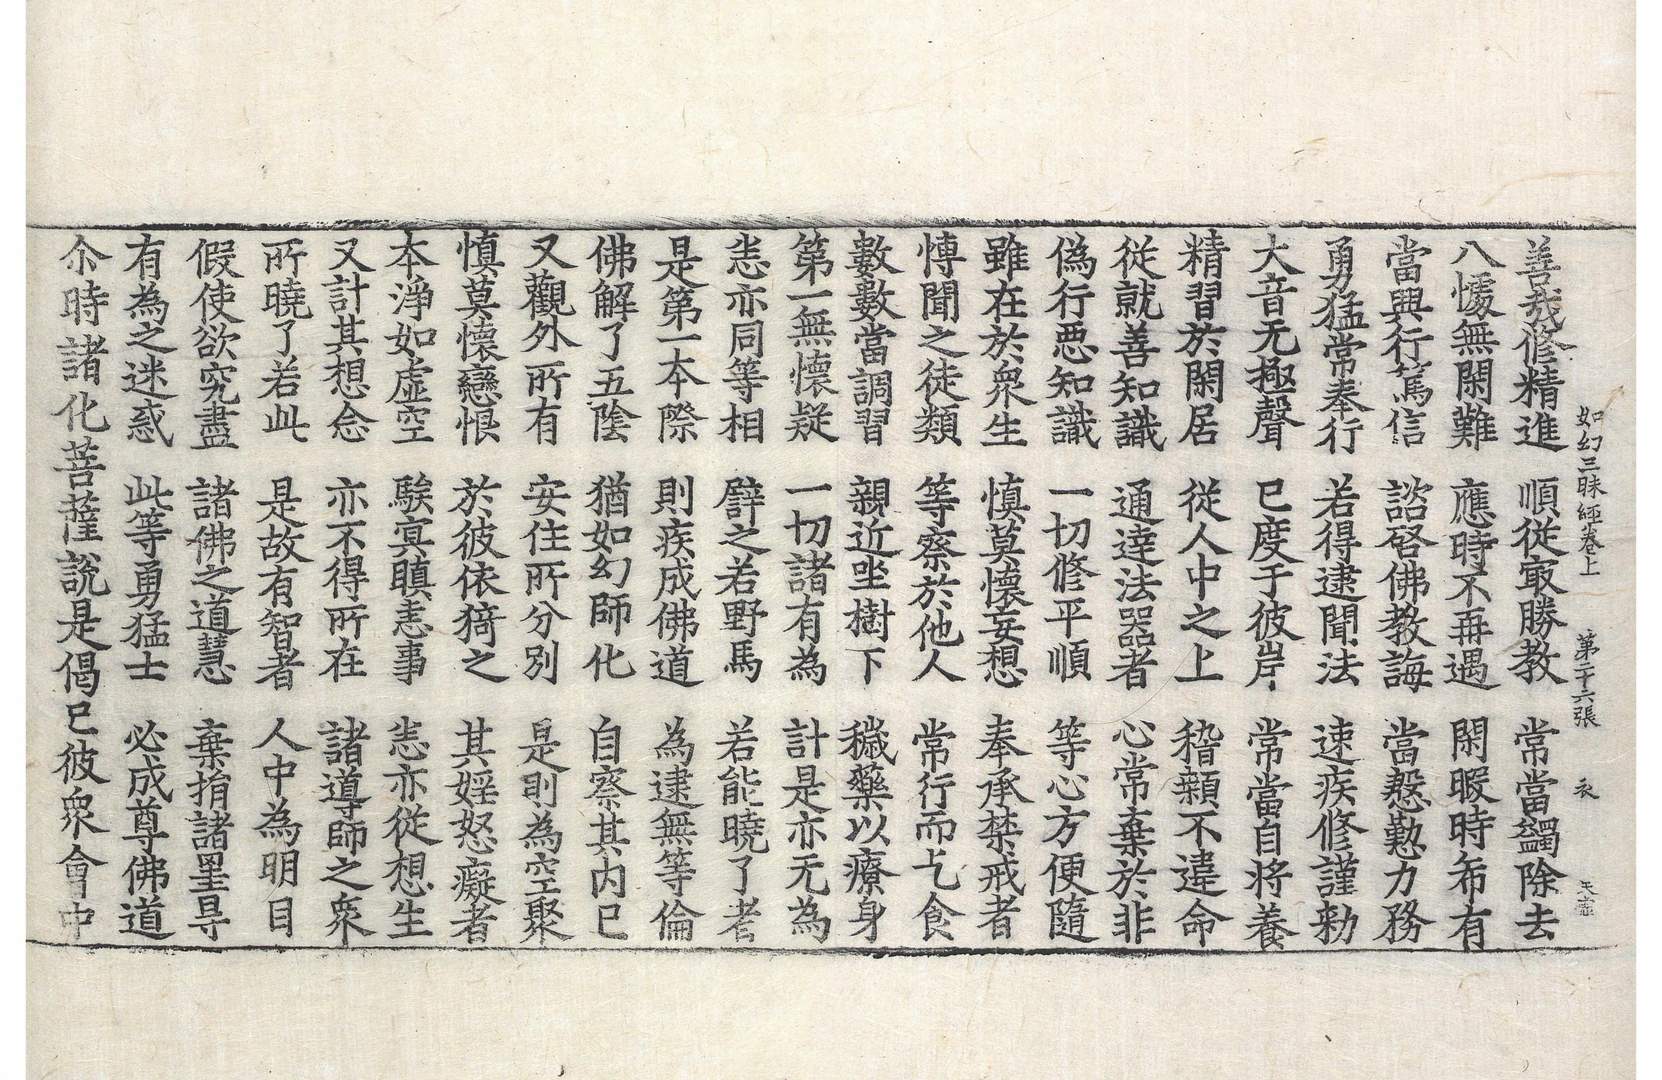 如幻三昧經卷上 第二十六張 衣
善哉修精進 順從㝡勝教 常當蠲除去
八懅無閑難 應時不再遇 閑暇時布有
當興行篤信 諮啓佛教誨 當慇懃力務
勇猛常奉行 若得逮聞法 速疾修謹勑
大音无極聲 已度于彼岸 常當自將養
精習於閑居 從人中之上 稽顙不違命
從就善知識 通達法器者 心常棄於非
偽行惡知識 一切修平順 等心方便隨
雖在於衆生 慎莫懷妄想 奉承禁戒者
愽聞之徒類 等察於他人 常行而乞食
數數當調習 親近坐樹下 穢藥以療身
第一無懷疑 一切諸有為 計是亦无為
恚亦同等相 譬之若野馬 若能曉了者
是第一本際 則疾成佛道 為逮無等倫
佛解了五陰 猶如幻師化 自察其内已
又觀外所有 安住所分別 是則為空聚
慎莫懷戀恨 於彼依猗之 其婬怒癡者
本淨如虛空 騃冥瞋恚事 恚亦從想生
又計其想念 亦不得所在 諸導師之衆
所曉了若此 是故有智者 人中為明目
假使欲究盡 諸佛之道慧 棄捐諸罣㝵
有為之迷惑 此等勇猛士 必成尊佛道
尒時諸化菩薩說是偈已彼衆會中